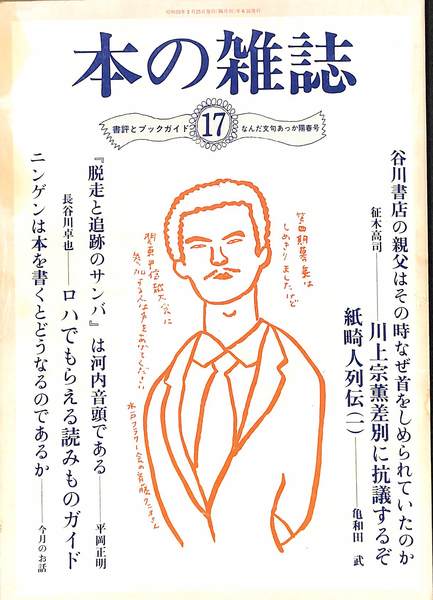 本の雑誌
書評とブックガイド
17
なんだ文句あっか陽春号
谷川書店の親父はその時なぜ首をしめられていたのか
征木高司――川上宗薫差別に抗議するぞ
紙畸人列伝(一)――亀和田 武
第四期募集は
しめきりましたけど
関東甲信越大会に
参加する人は手をあげてください
『脱走と追跡のサンバ』は河内音頭である――平岡正明
長谷川卓也――ロハでもらえる読みものガイド
ニンゲンは本を書くとどうなるのであるか――今月のお話